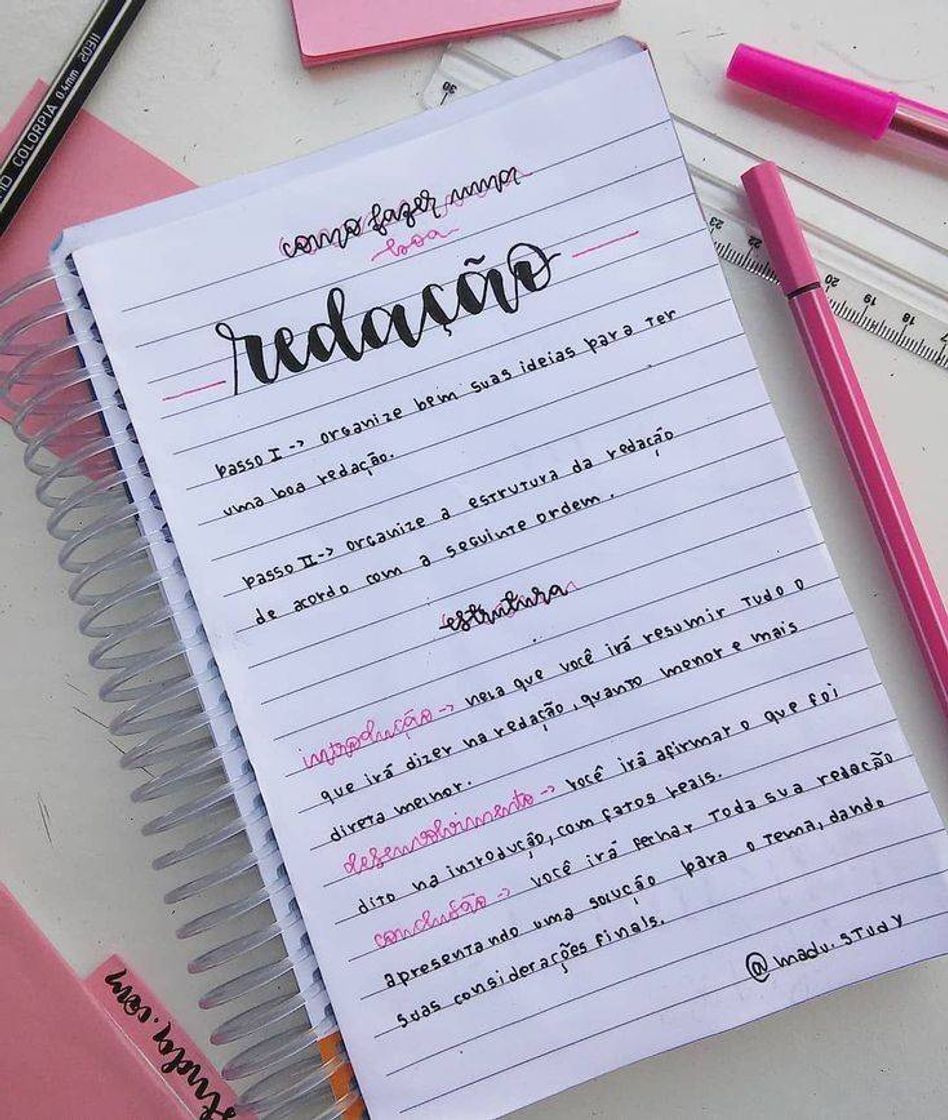 COLORPIA 0.4mm 20311
30
como fazer uma
boa
redação
23 22 20 19 18
passo I -> organize bem suas ideias para ter
uma boa redação.
passo II -> organize a estrutura da redação
de acordo com a seguinte ordem.
estrutura
introdução -> nela que você irá resumir tudo o
que irá dizer na redação, quanto menor e mais
direta melhor.
desenvolvimento -> você irá afirmar o que foi
dito na introdução, com fatos reais.
conclusão -> você irá fechar toda sua redação
apresentando uma solução para o tema, dando
suas considerações finais.
@madu.study